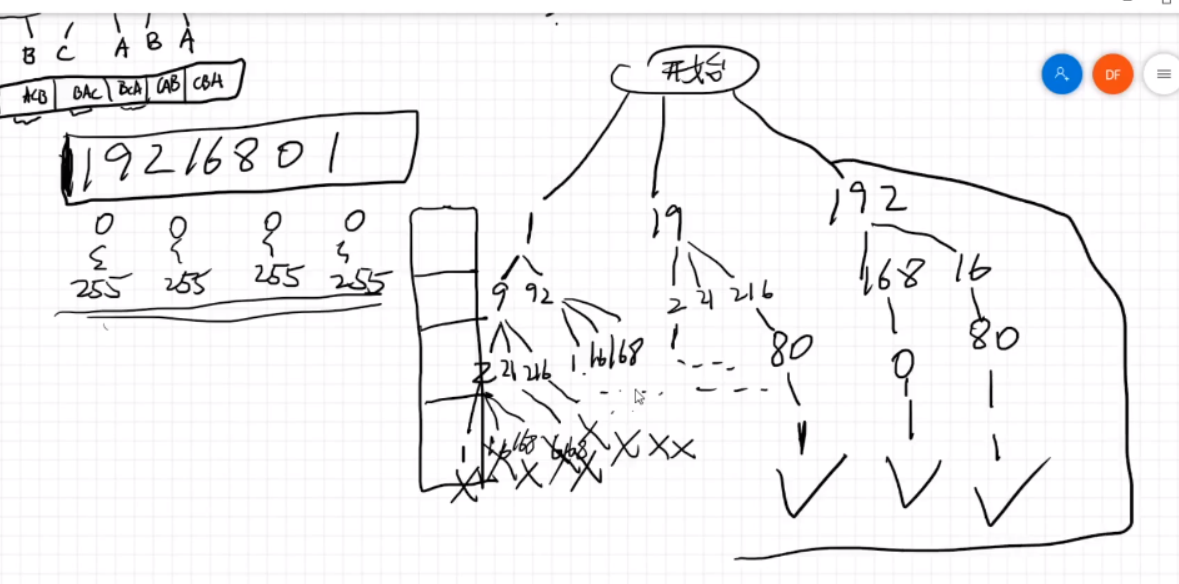 B C A B A
ACB BAC BCA CAB CBA
19216801
0 0 0 0
255 255 255 255
开始
DF
1 19 192
9 92 2 21 216 168 16
2 21 216 1 16 168 1 80 0 80
1 16 168 16 168